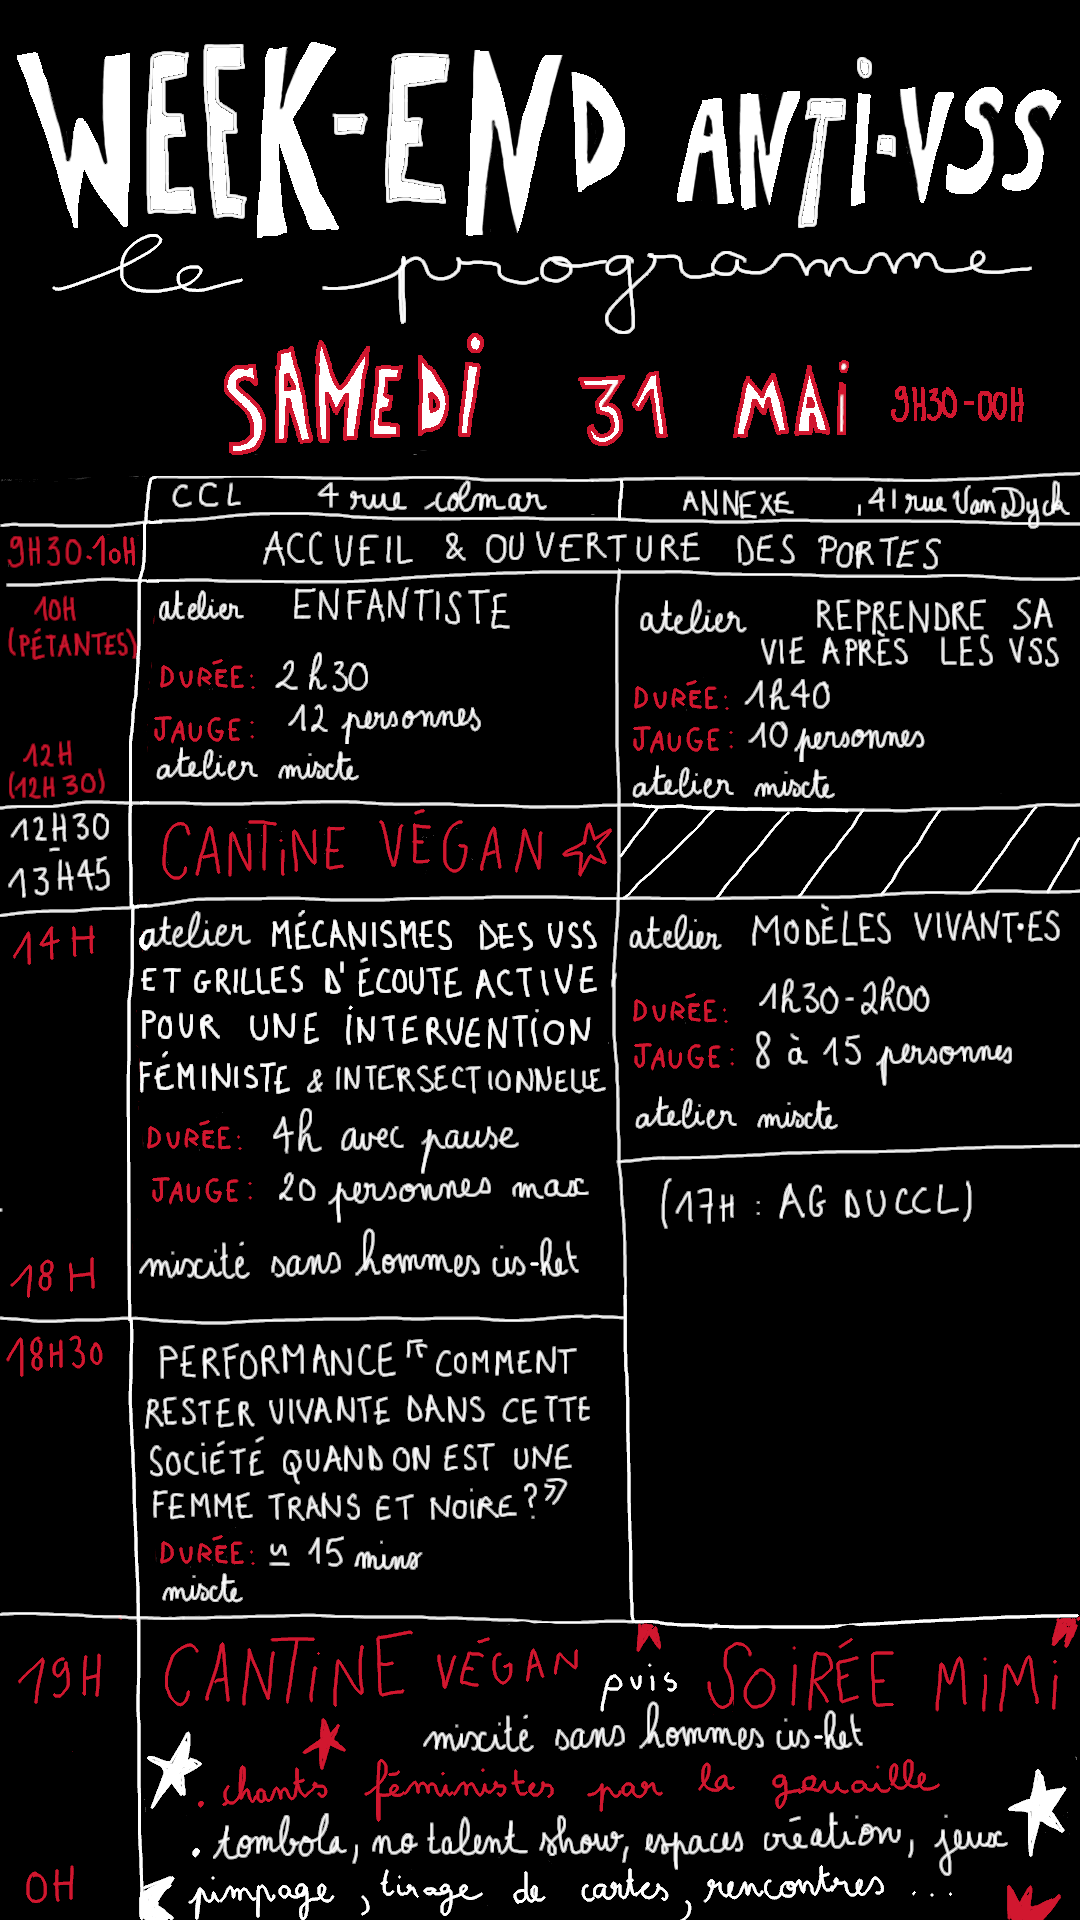 WEEK-END ANTI-VSS
le programme
SAMEDI 31 MAI 9H30-00H
CCL 4 rue colmar
ANNEXE , 41 rue Van Dyck
9H30-10H
ACCUEIL & OUVERTURE DES PORTES
10H
(PÉTANTES)
12H
(12H30)
atelier ENFANTISTE
DURÉE: 2h30
JAUGE: 12 personnes
atelier mixte
atelier REPRENDRE SA
VIE APRÈS LES VSS
DURÉE: 1h40
JAUGE: 10 personnes
atelier mixte
12H30
-
13H45
CANTINE VÉGAN
14H
18H
atelier MÉCANISMES DES VSS
ET GRILLES D'ÉCOUTE ACTIVE
POUR UNE INTERVENTION
FÉMINISTE & INTERSECTIONNELLE
DURÉE: 4h avec pause
JAUGE: 20 personnes max
mixité sans hommes cis-het
atelier MODÈLES VIVANT·ES
DURÉE: 1h30-2h00
JAUGE: 8 à 15 personnes
atelier mixte
(17H : AG DU CCL)
18H30
PERFORMANCE "COMMENT
RESTER VIVANTE DANS CETTE
SOCIÉTÉ QUAND ON EST UNE
FEMME TRANS ET NOIRE?"
DURÉE: ≌ 15 mins
mixte
19H
0H
CANTINE VÉGAN puis SOIRÉE MIMI
mixité sans hommes cis-het
. chants féministes par la gouaille
. tombola, no talent show, espaces création, jeux
pimpage, tirage de cartes, rencontres ...